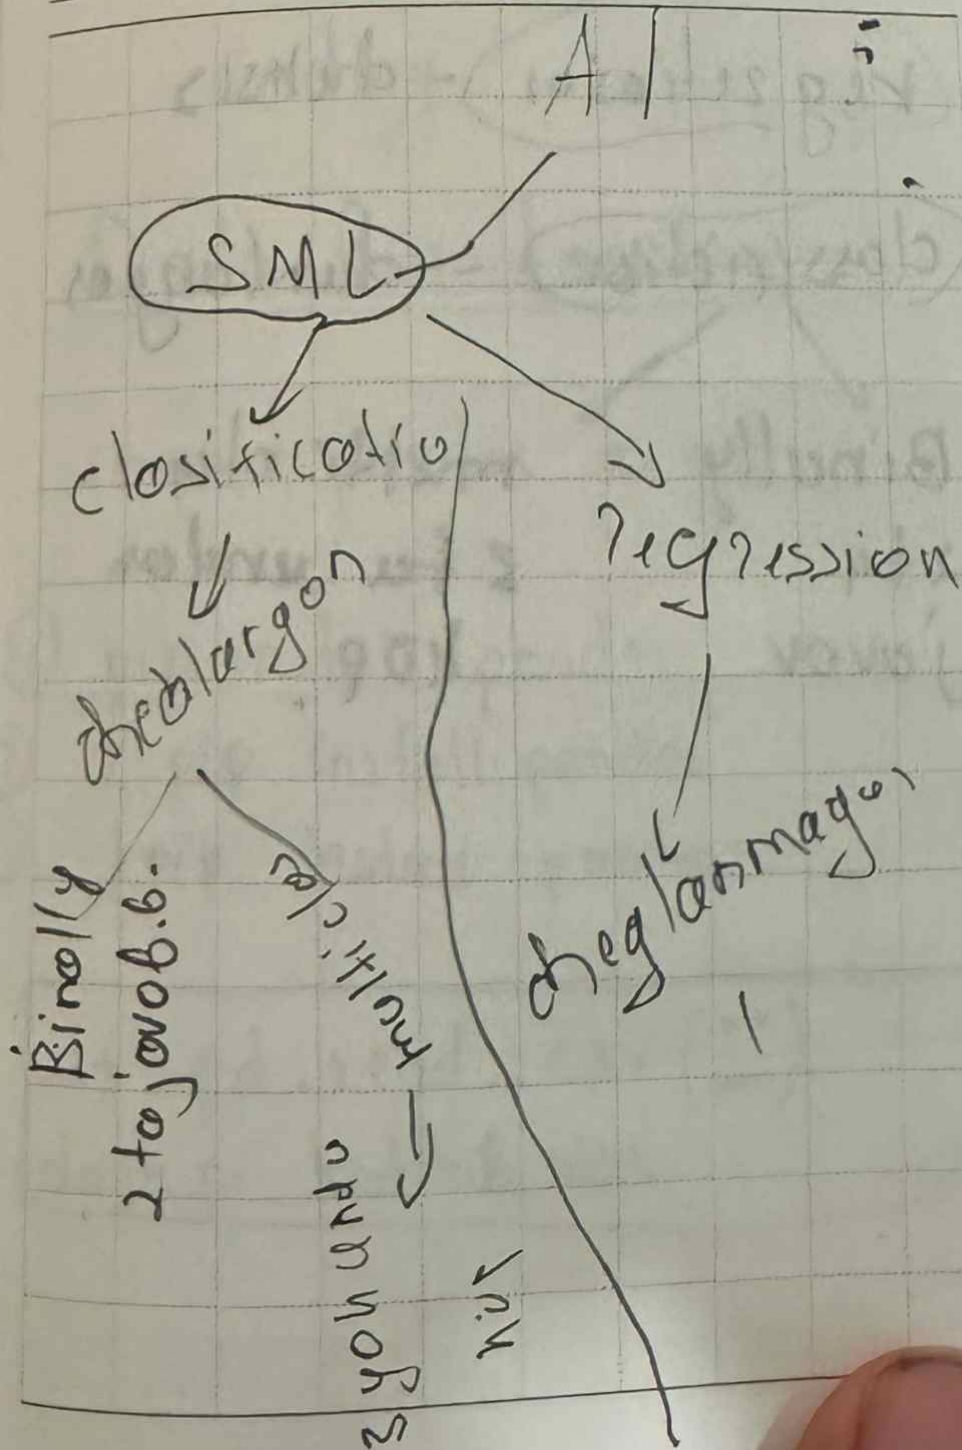 AI
SML
clasificatio
regression
chedlargon
cheglanmagon
Binally
2 ta javob.b.
multi cla
3 yoki undu